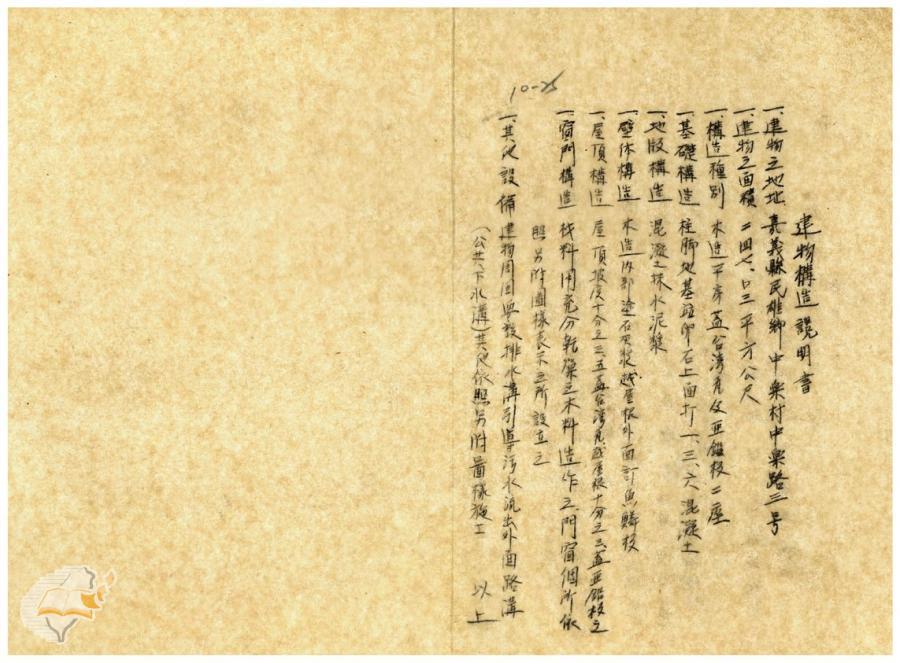 建物構造説明書
一、建物之地址 嘉義縣民雄鄉中樂村中樂路三号
一、建物之面積 二四七、〇三平方公尺
一、構造種別 木造平家蓋台湾瓦及亜鉛板二座
一、基礎構造 柱脚地基
卵石上面打一、三、六混凝土
一、地版構造 混凝之抹水泥漿
一、壁体構造 木造内部塗石灰漿 越屋根外面釘魚鱗板
一、屋頂構造 屋頂坡度十分之三、五蓋台湾瓦 越屋根十分之三、蓋亜鉛板之
一、窗門構造 材料用充分乾燥之木料造作之、門窗個所依
照另附圖樣表示之所設立之
一、其他設備 建物周囲
設排水溝引導污水流出外面路溝
(公共下水溝)其他依照另附圖樣施工 以上
10-25